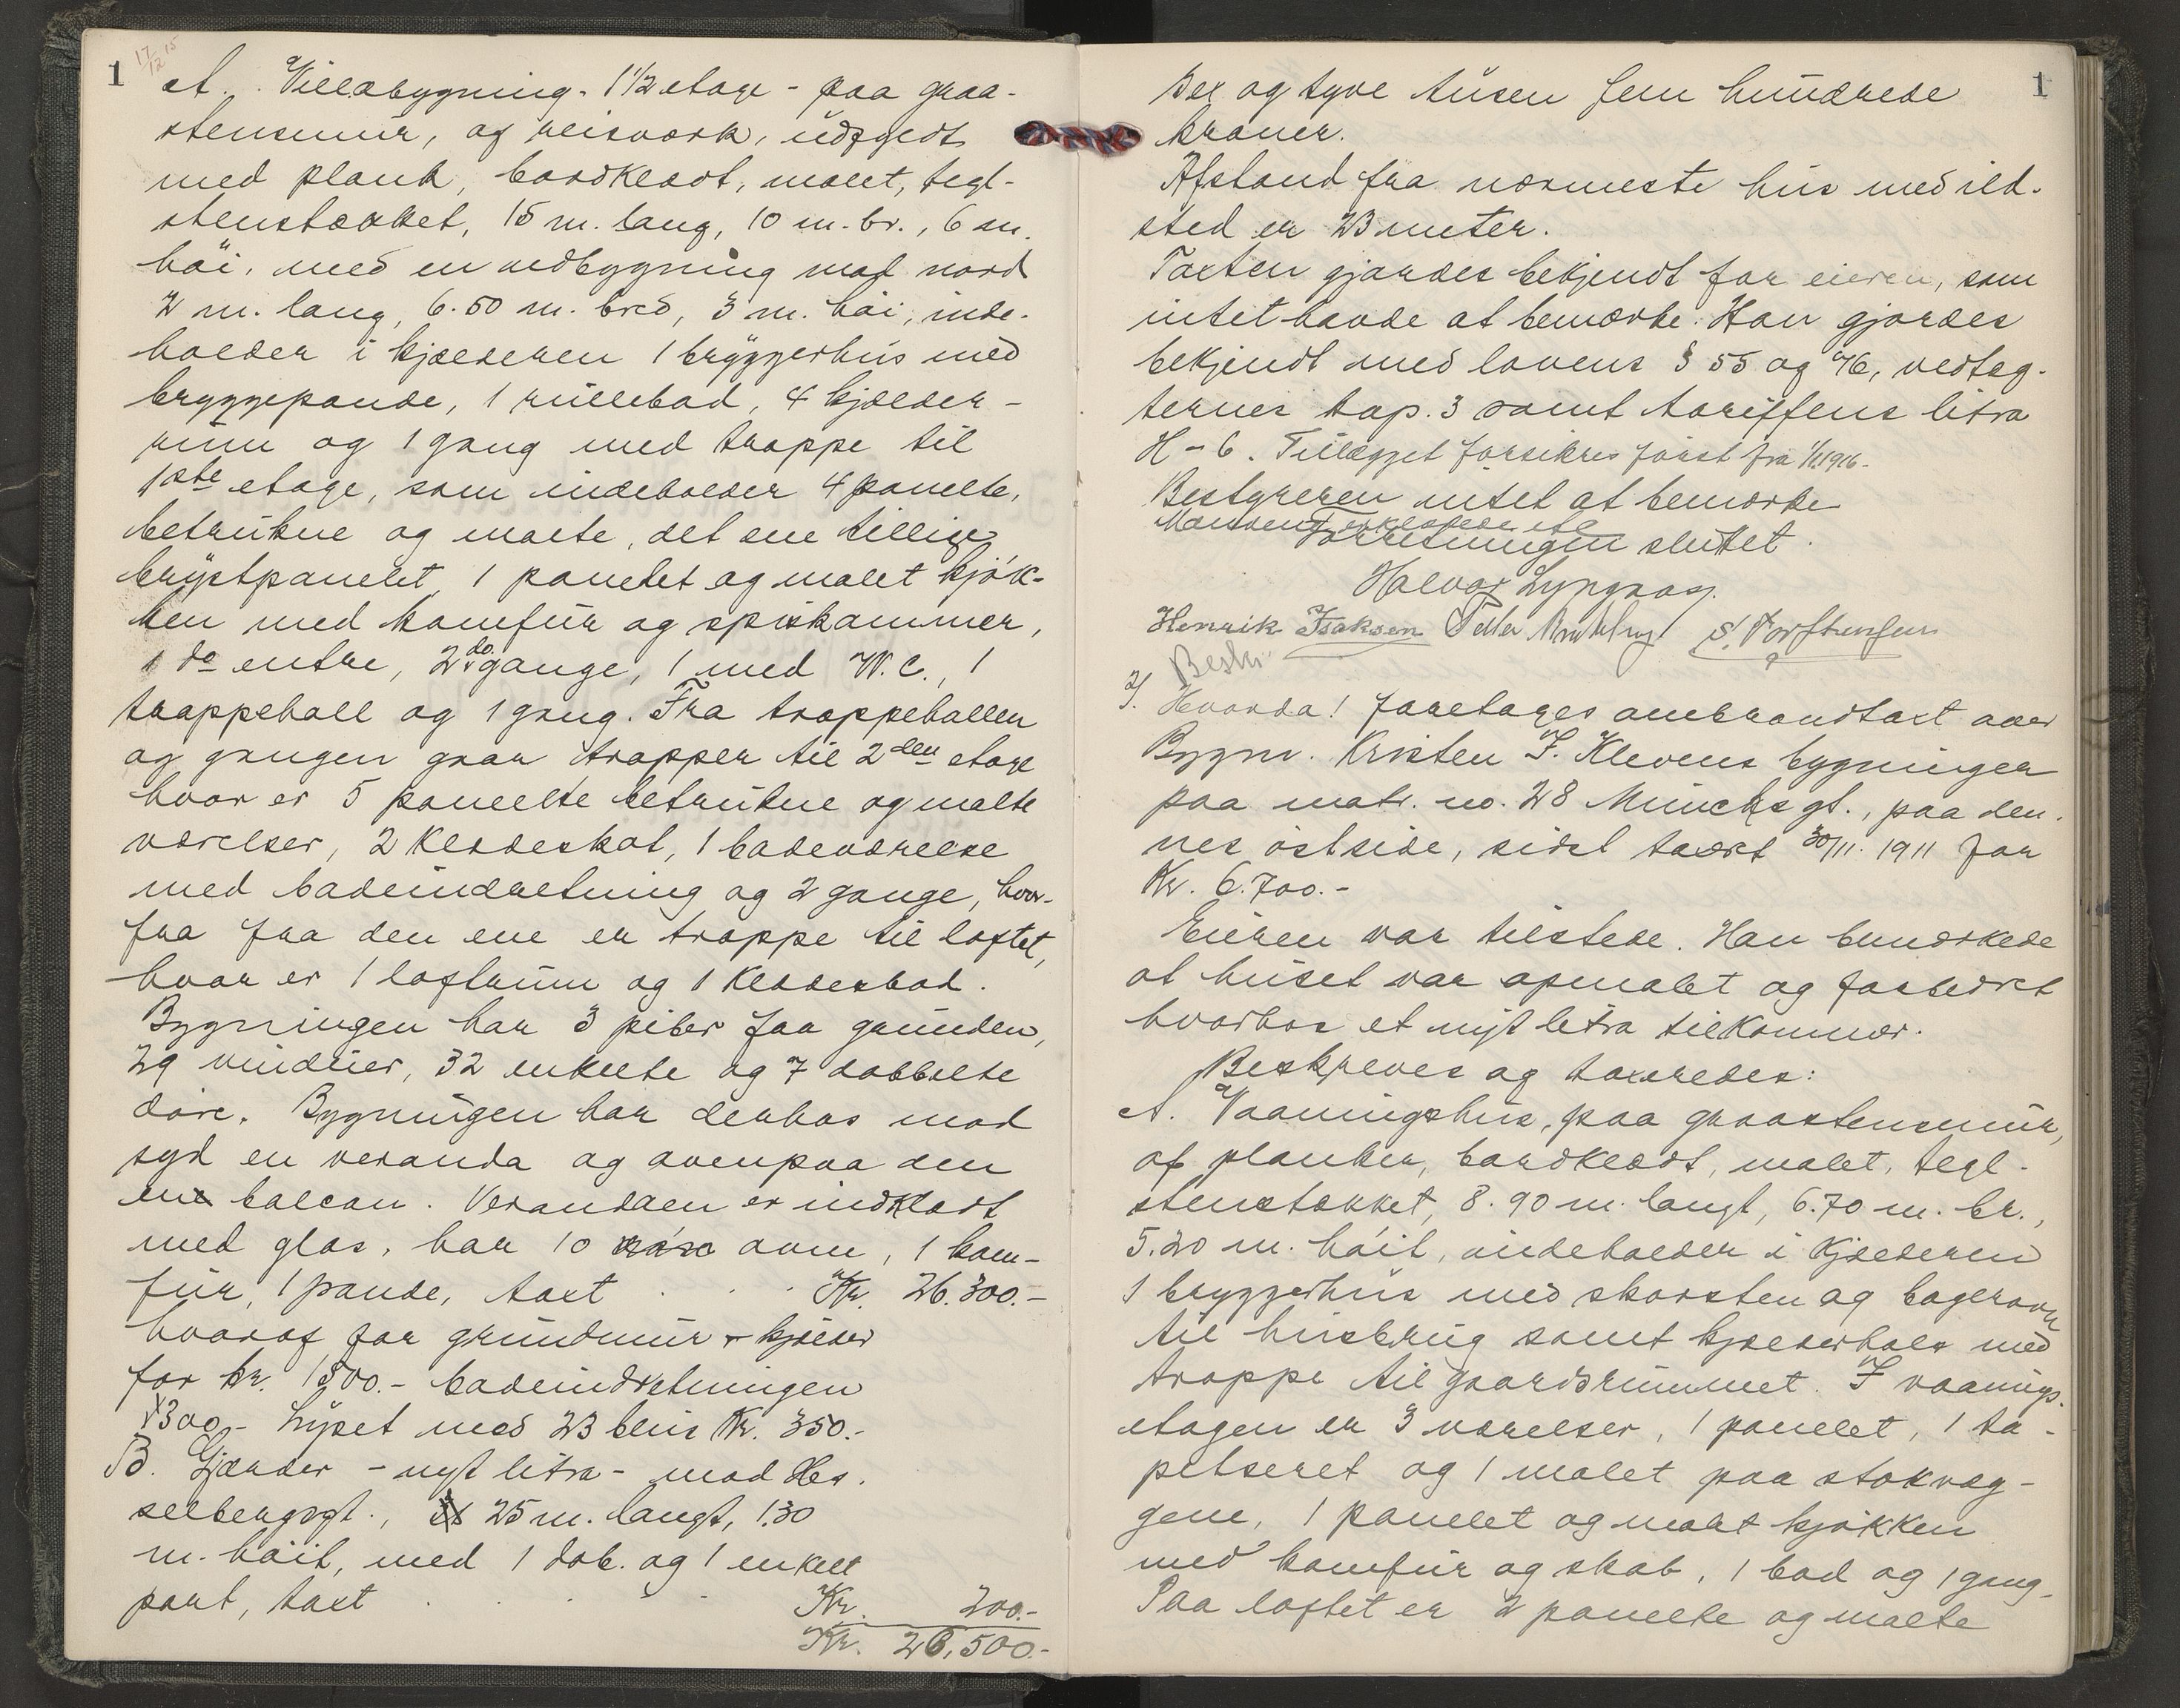 1
17/12 15
A. Villabygning. 1 1/2 etage - paa graa-
stensmur, af reisverk, udfyldt
med plank, bordklædt, malet, tegl-
stenstækket, 15 m. lang, 10 m. br., 6 m.
höi, med en udbygning mod nord
2 m. lang, 6.50 m. bred, 3 m. höi, inde-
holder i kjælderen 1 bryggerhus med
bryggepande, 1 rullebod, 4 kjælder-
rum og 1 gang med trappe til
1ste etage, som indeholder 4 panelte,
betrukne og malte, det ene tillige
brystpanelet, 1 panelet og malet kjök-
ken med komfur og spiskammer,
1 do entre, 2 do gange, 1 med W.C., 1
trappehall og 1 gang. Fra trappehallen
og gangen gaar trapper til 2den etage
hvor er 5 paneelte betrukne og malte
værelser, 2 Klædeskot, 1 badeværelse
med badeindretning og 2 gange, hvor-
fra fra den ene er trappe til loftet,
hvor er 1 loftrum og 1 Klædesbod.
Bygningen har 3 piber fra grunden,
29 vinduer, 32 enkelte og 7 dobbelte
döre. Bygningen har derhos mod
syd en veranda og ovenpaa den
en balcon. Verandaen er indklædt
med glas, har 10 ovne, 1 kom-
fur, 1 pande, taxt . . . Kr. 26.300.-
hvoraf for grundmur + kjælder
for kr. 1800.- badeindretningen
300.- Lyset med 23 blus Kr. 350.-
B. Gjærder - nyt litra - mod Hes-
selbergsgt., 25 m. langt, 1.30
m. höit, med 1 dob. og 1 enkelt
port, taxt . . . . Kr. 200.-
Kr. 26,500.-
1
Sex og tyve tusen fem hundrede
kroner.
Afstand fra nærmeste hus med ild-
sted er 23 meter.
Taxten gjordes bekjendt for eieren, som
intet havde at bemærke. Han gjordes
bekjendt med lovens § 55 og 76, vedtæg-
ternes kap. 3 samt tariffens litra
H - 6. Tillægget forsikres först fra 1/1 1916.
Bestyreren intet at bemærke
Forretningen sluttet.
Halvor Lyngaas.
Henrik Isaksen S. Torstensen
Beskr.
2/. Hvorda! foretages ombrandtaxt over
Bygm. Kristen F. Klevens bygninger
paa matr. no. 28 Munchs gt., paa den-
nes östside, sidst taxert 30/11. 1911 for
Kr. 6.700.-
Eieren var tilstede. Han bemærkede
at huset var opmalet og forbedret
hvorhos et nyt litra tilkommer.
Beskreves og taxeredes:
A. Vaaningshus, paa graastensmur,
af planker, bordklædt, malet, tegl-
stenstækket, 8.90 m. langt, 6.70 m. br.,
5.20 m. höit, indeholder i kjælderen
1 bryggerhus med skorsten og bagerovn
til husbrug samt kjælderhals med
trappe til gaardsrummet. I vaanings-
etagen er 3 værelser, 1 panelet, 1 ta-
petseret og 1 malet paa stokvæg-
gene, 1 panelet og malet kjökken
med komfur og skab, 1 bod og 1 gang-
Paa loftet er 2 paneelte og malte